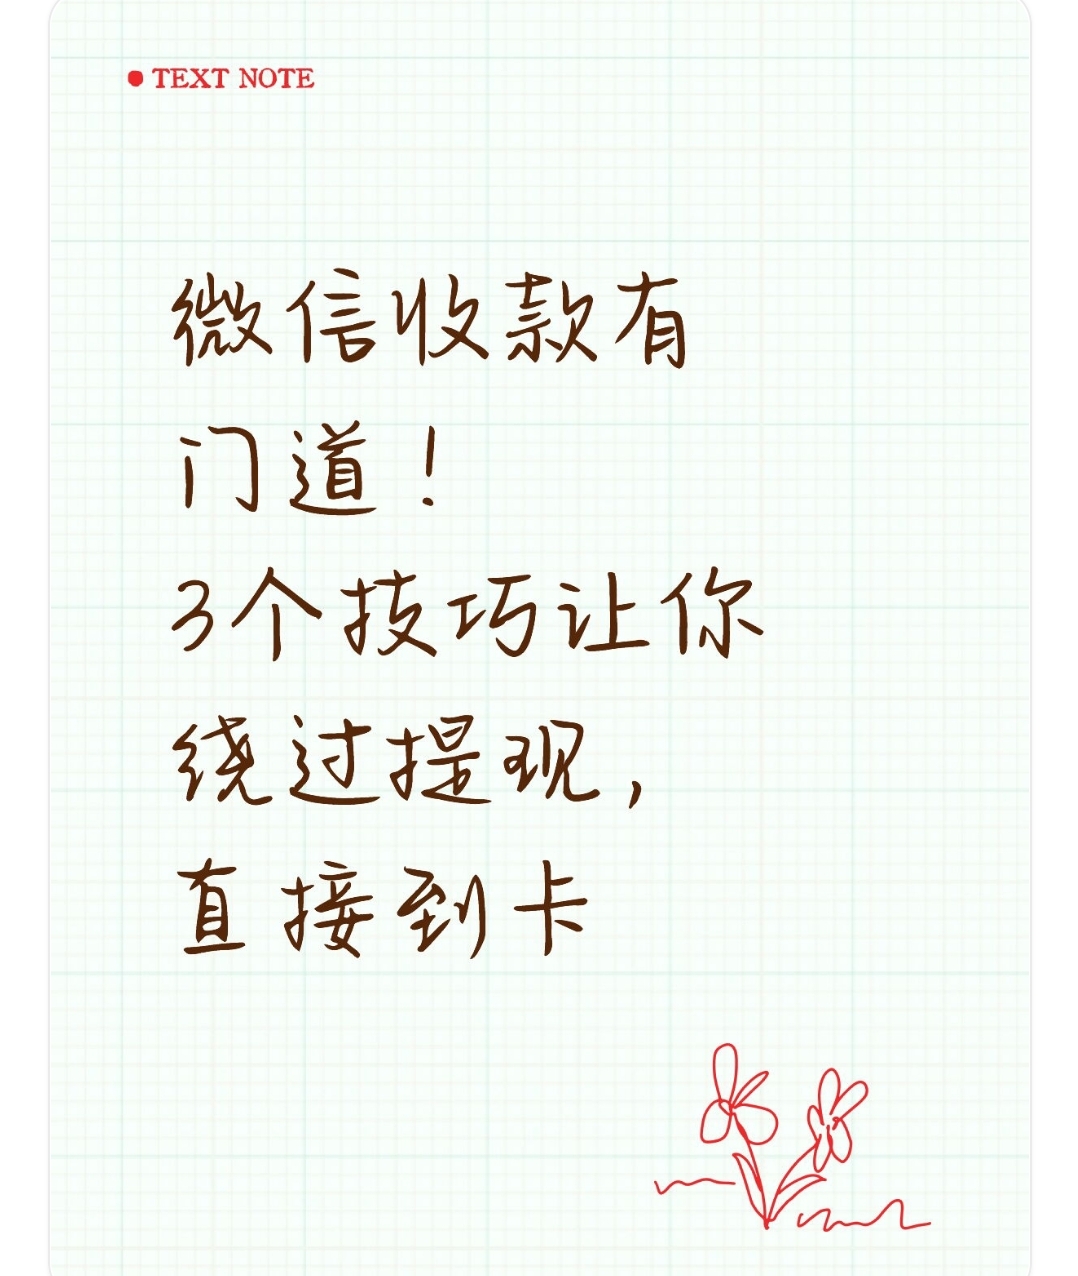 TEXT NOTE
微信收款有
门道！
3个技巧让你
绕过提现，
直接到卡